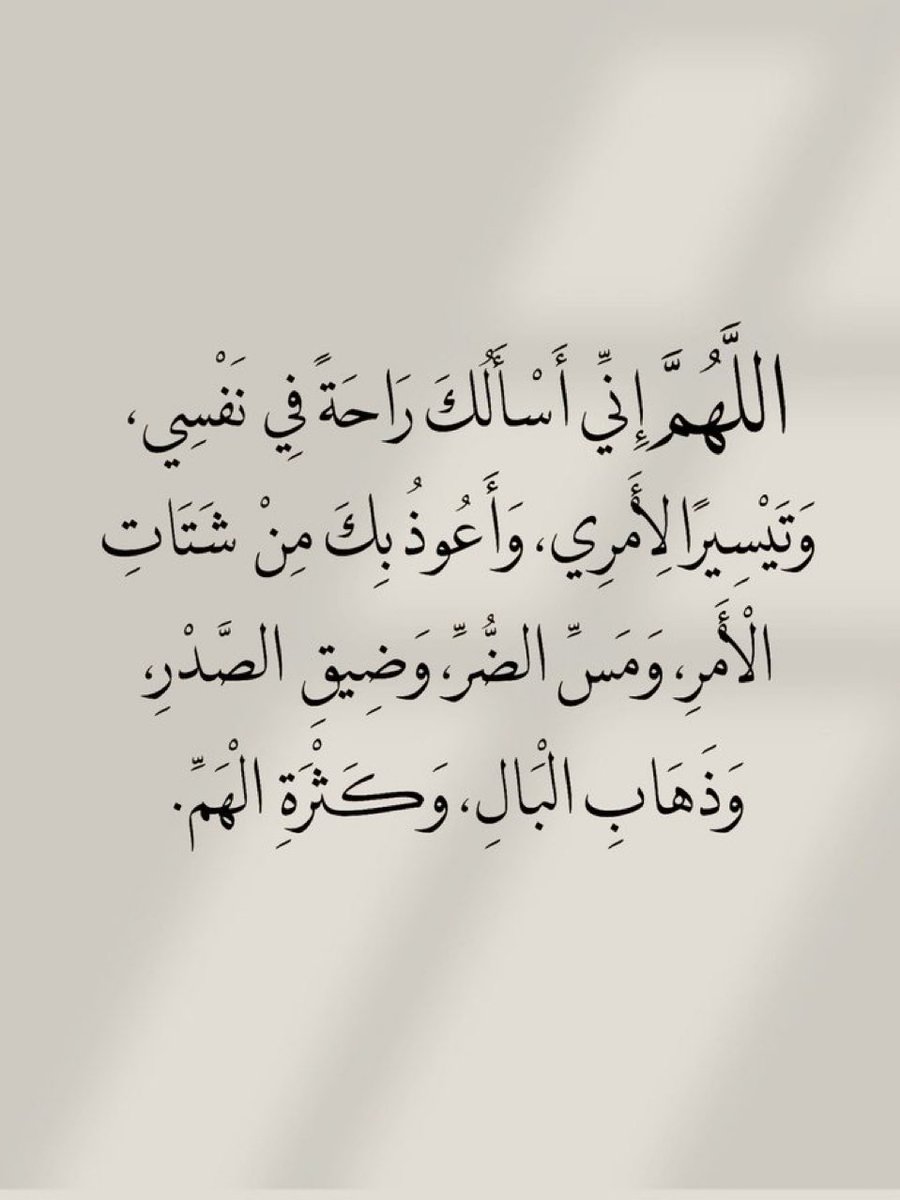 اللَّهُمَّ إِنِّي أَسْأَلُكَ رَاحَةً فِي نَفْسِي،
وَتَيْسِيرًا لِأَمرِي، وَأَعُوذُ بِكَ مِنْ شَتَاتِ
الْأَمرِ، وَمَسِّ الضُّرِّ، وَضِيقِ الصَّدْرِ،
وَذَهَابِ الْبَالِ، وَكَثْرَةِ الْهَمِّ.